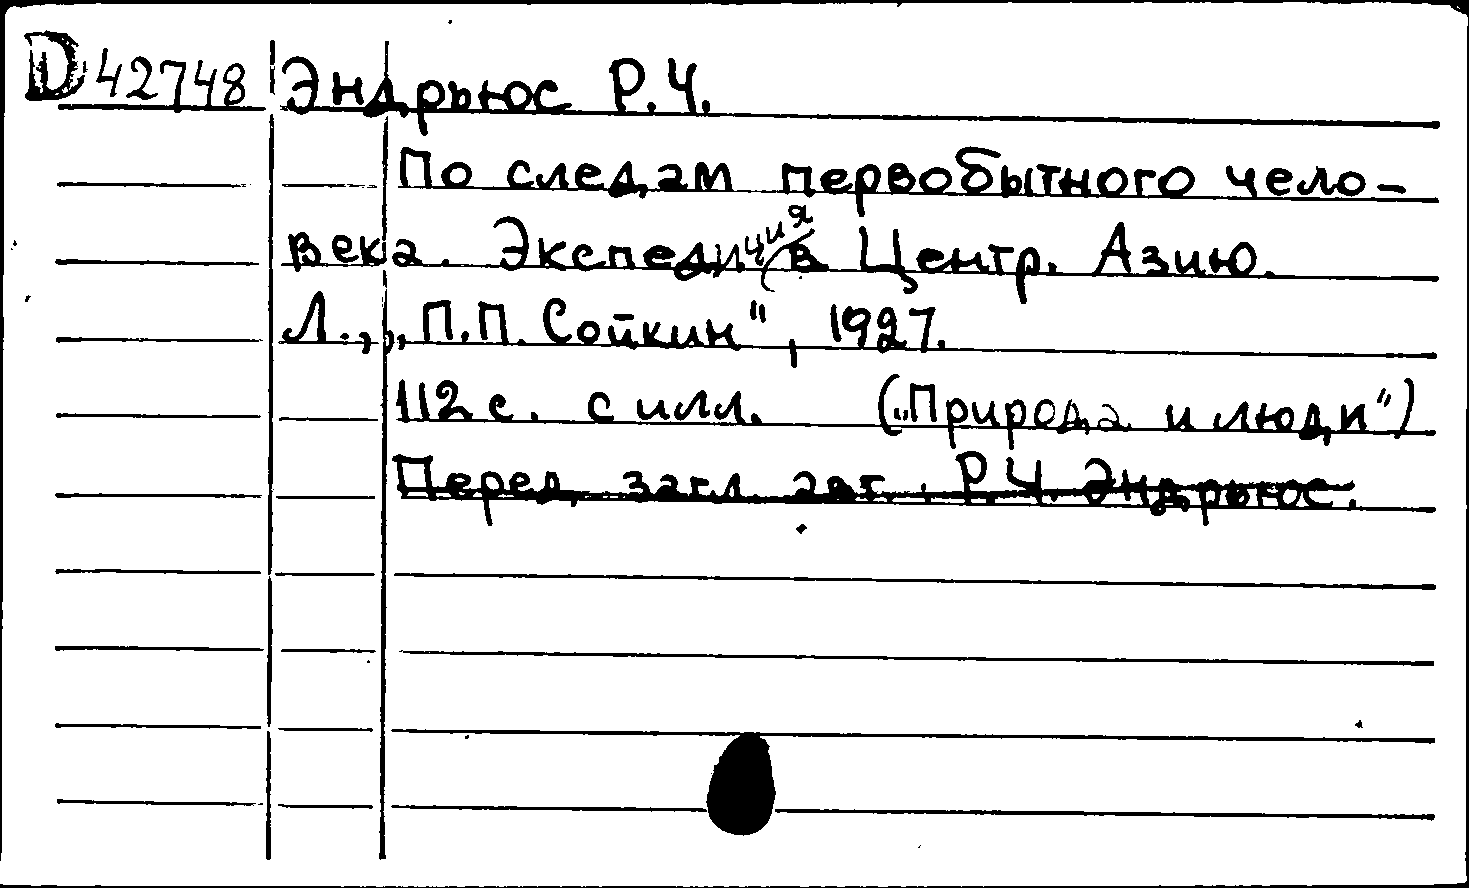 D 42748 Эндрьюс Р.Ч.
По следам первобытного чело-
века. Экспедиция в Центр. Азию.
Л., „П.П. Сойкин", 1927.
112 с. с илл. („Природа и люди")
Перед загл. авт.: Р.Ч. Эндрьюс.